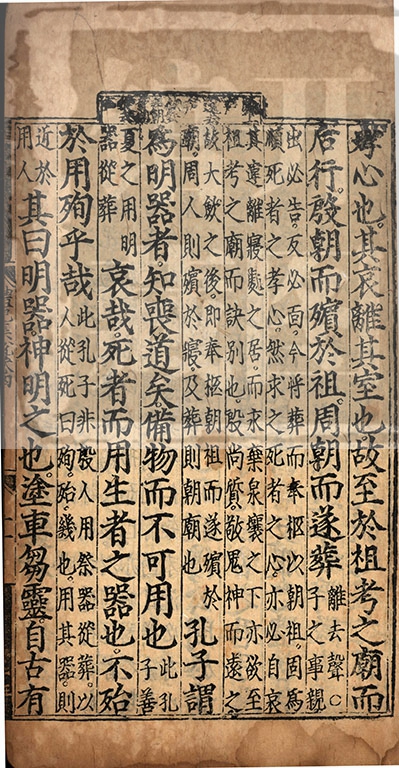 孝心也。其哀離其室也故至於祖考之廟而
后行。殷朝而殯於祖。周朝而遂葬
離去聲○
子之事親
出必告。反必面。今將葬而奉柩以朝祖。固為
順死者之孝心。然求之死者之心。亦必自哀
其違離寢處之居。而永棄泉壤之下亦欲至
祖考之廟而訣別也殷尚質。敬鬼神而遠之
故大斂之後。即奉柩朝祖而遂殯於
廟。周人則殯於寢。及葬則朝廟也
孔子謂
為明器者知喪道矣備物而不可用也
此孔
子善
夏之用明
器從葬
哀哉死者而用生者之器也。不殆
於用殉乎哉
此孔子非殷人用祭器從葬。以
人從死曰殉。殆。幾也。用其器。則
近於
用人
其曰明器神明之也。塗車芻靈自古有